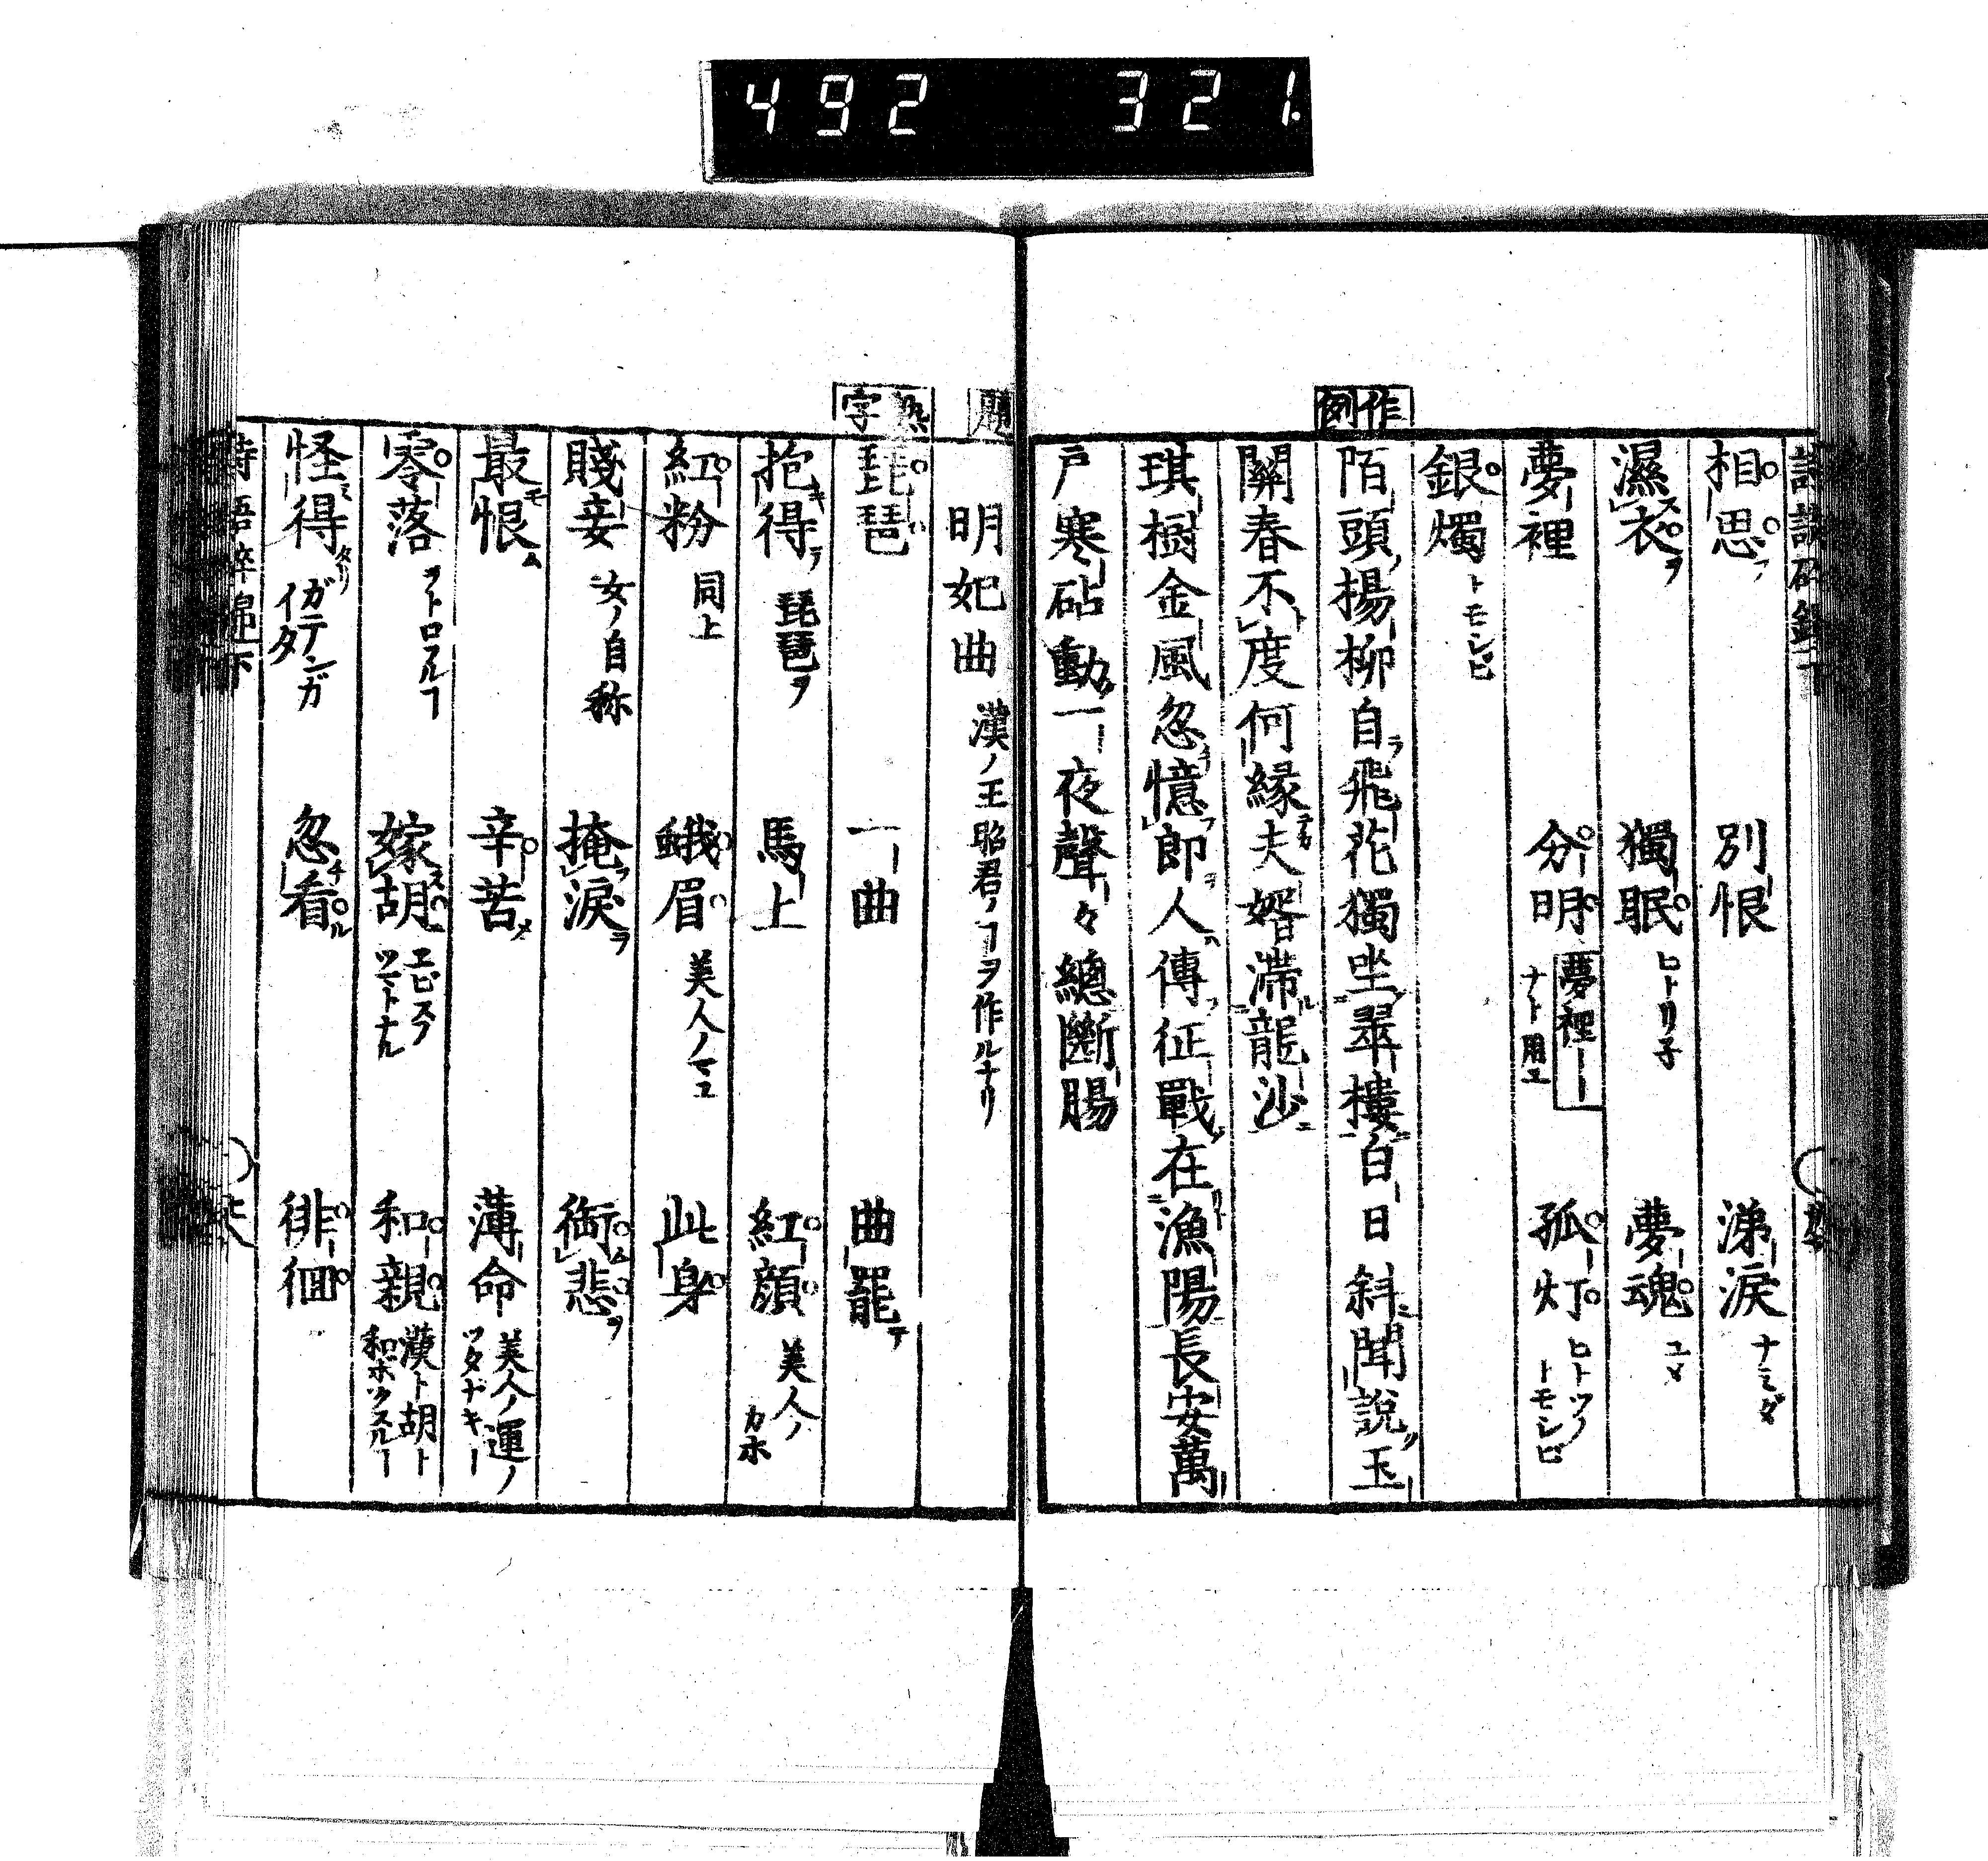 492 321.
相思 別恨 涕淚 ナミダ
濕衣ヲ 獨眠 ヒトリ子 夢魂 ユメ
夢裡 分明 夢裡一一ナト用エ 孤灯 ヒトツノトモシビ
銀燭 トモシビ
作例
陌頭楊柳自飛花獨坐翠樓白日斜聞說玉
關春不度何緣夫婿滯龍沙
琪樹金風忽憶郎人傳征戰在漁陽長安萬
戶寒砧動一夜聲々總斷腸
題
明妃曲 漢ノ王昭君ノヿヲ作ルナリ
熟字
琵琶 一曲 曲罷テ
抱得 琵琶ヲ 馬上 紅顔 美人ノカホ
紅粉 同上 蛾眉 美人ノマユ 此身
賤妾 女ノ自称 掩淚ヲ 銜悲ヲ
最恨ム 辛苦 薄命 美人ノ運ノツタナキヿ
零落 ヲトロフルヿ 嫁胡 エビスノツマトナル 和親 漢ト胡ト和ボクスルヿ
怪得タリ ガテンガイタ 忽看ル 徘徊
詩語砕錦下